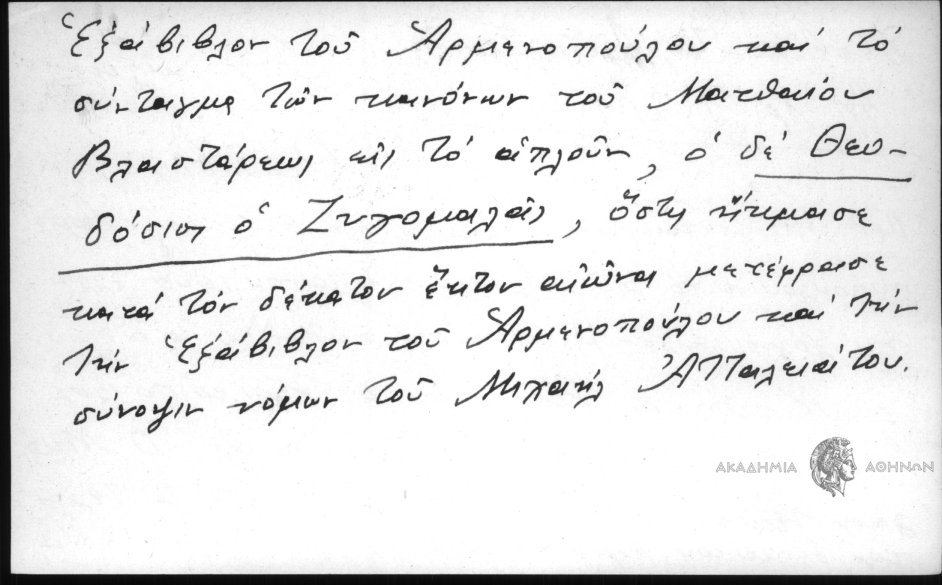 Ἑξάβιβλον τοῦ Ἁρμενοπούλου καί τό
σύνταγμα τῶν κανόνων τοῦ Ματθαίου
Βλαστάρεως εἰς τό ἁπλοῦν, ὁ δέ Θεο-
δόσιος ὁ Ζυγομαλᾶς, ὅστις ἤκμασε
κατά τόν δέκατον ἕκτον αἰῶνα μετέφρασε
τήν Ἑξάβιβλον τοῦ Ἁρμενοπούλου καί τήν
σύνοψιν νόμων τοῦ Μιχαήλ Ἀτταλειάτου.
ΑΚΑΔΗΜΙΑ ΑΘΗΝΩΝ